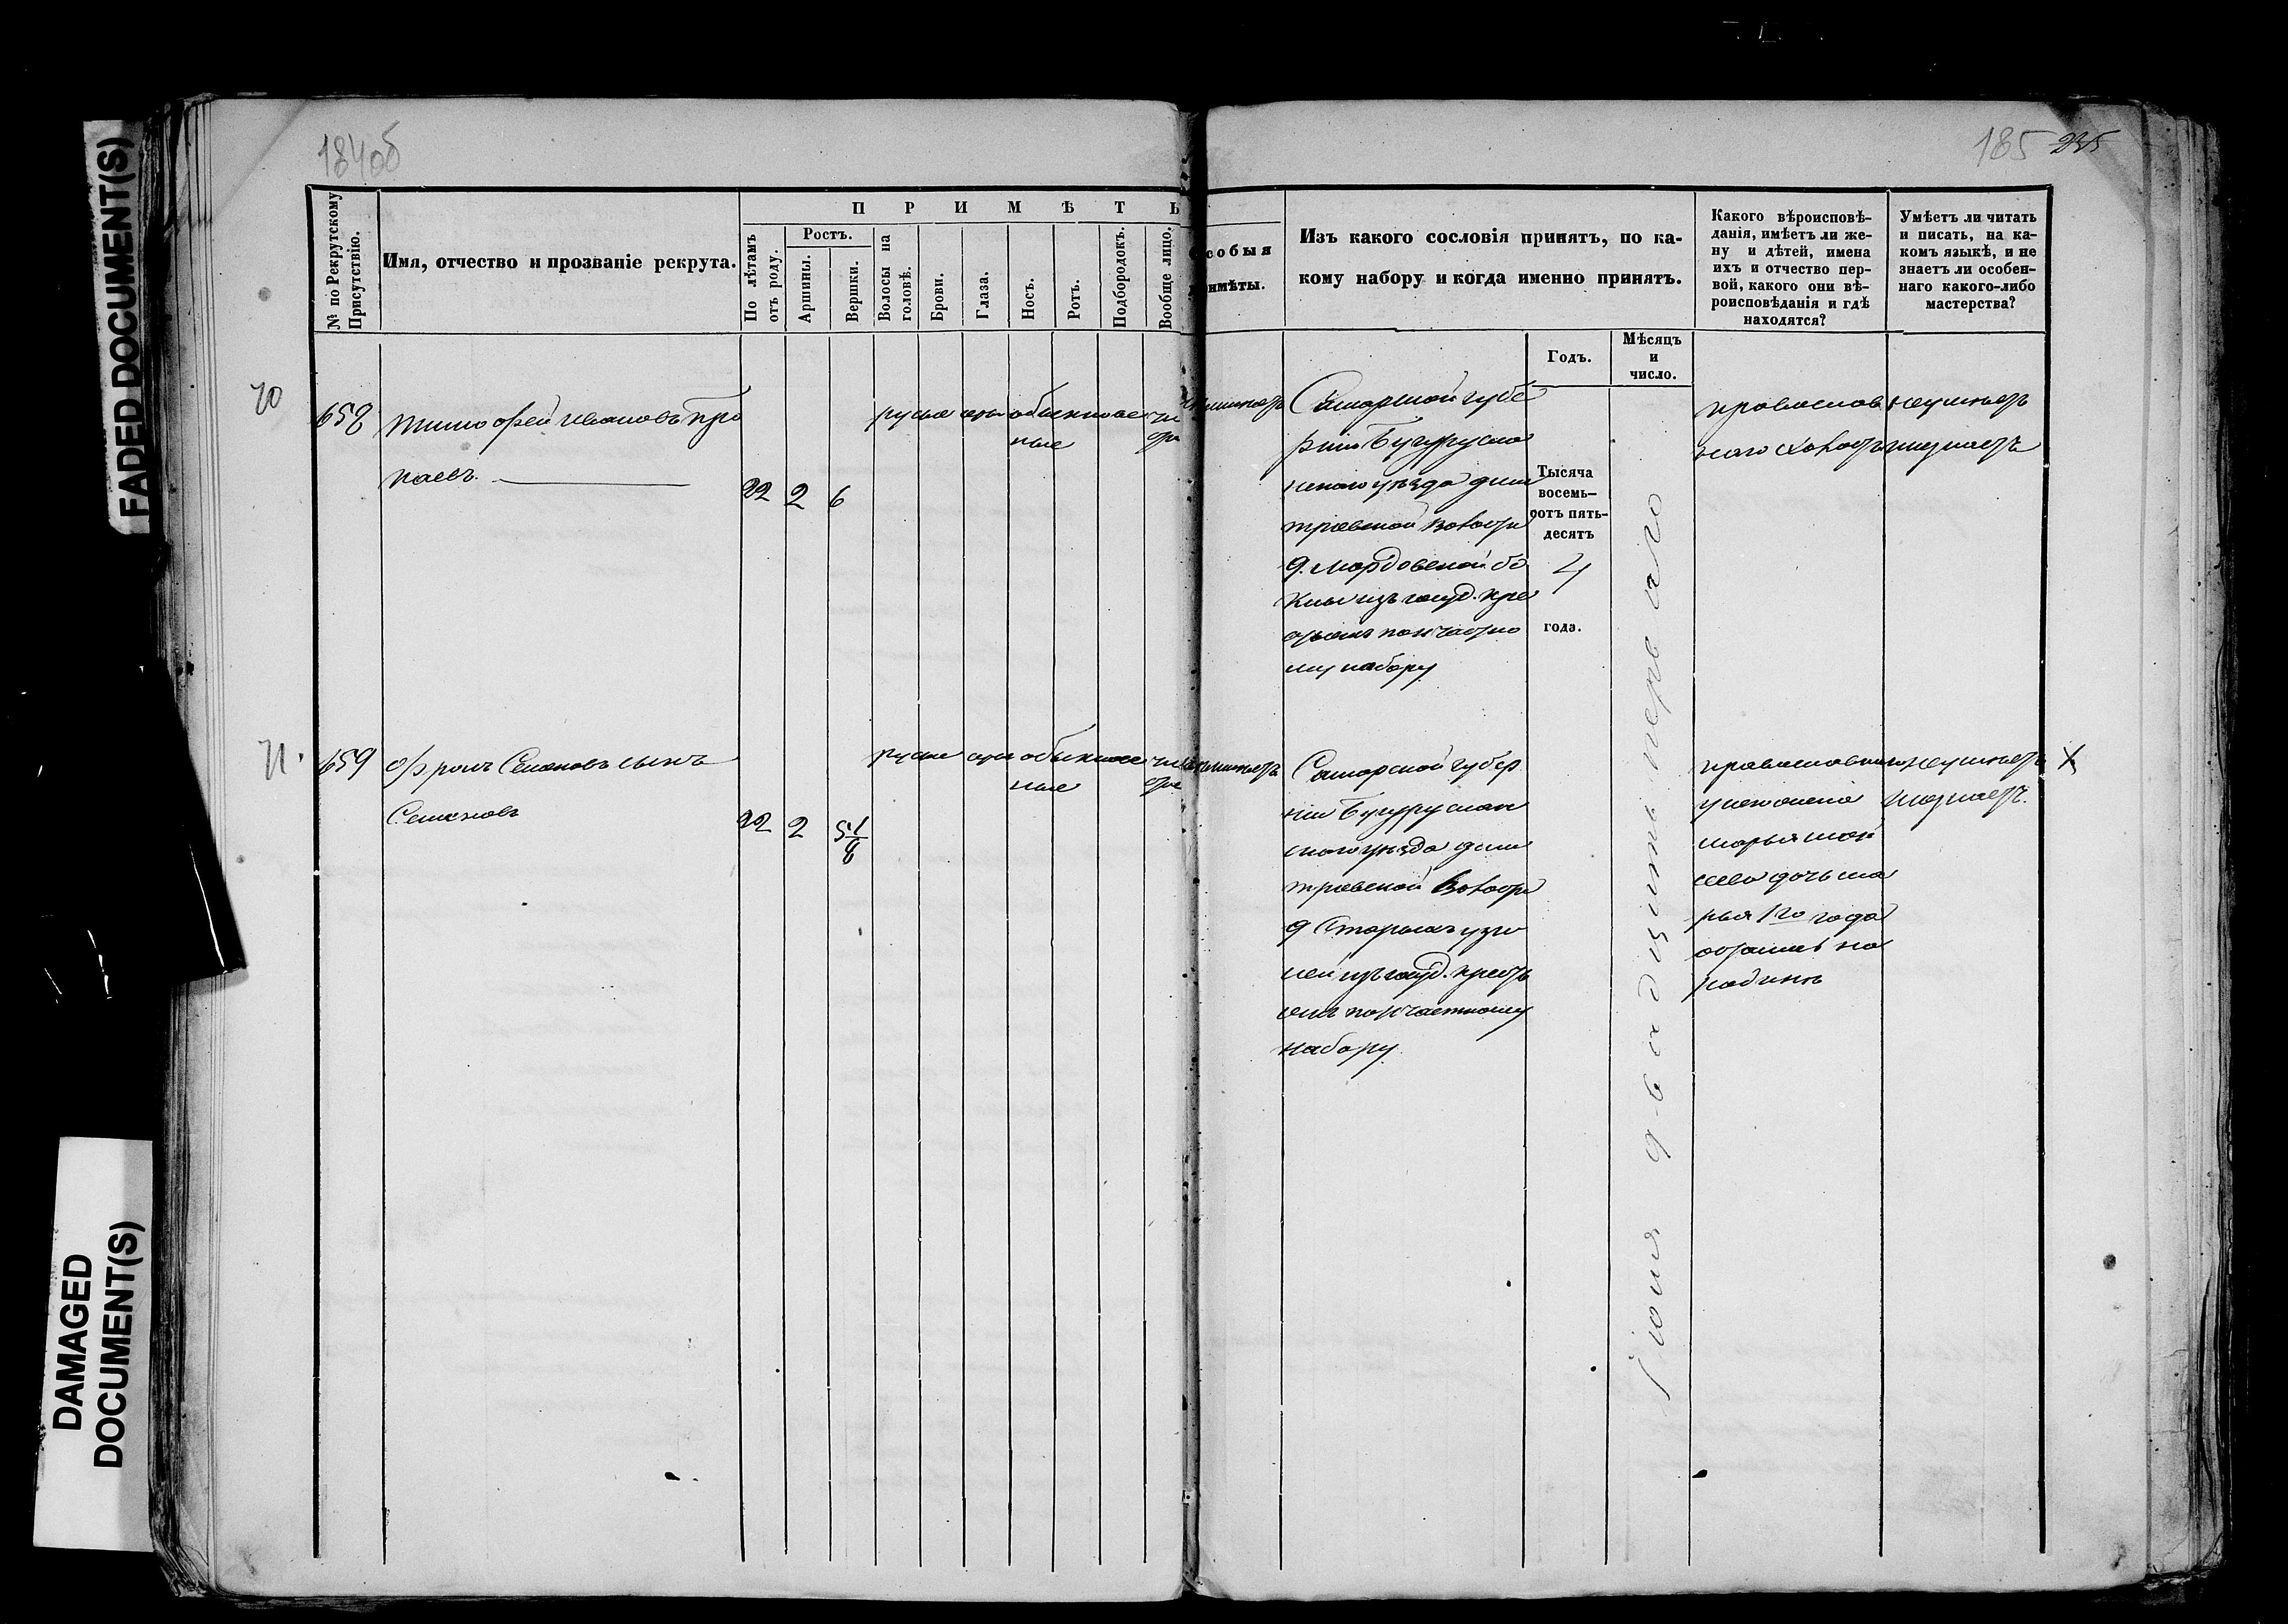 184об
185 235
FADED DOCUMENT(S)
DAMAGED
DOCUMENT(S)
№ по Рекрутскому
Присутствію.
Имя, отчество и прозваніе рекрута.
ПРИМѢТЫ
По лѣтамъ
отъ роду.
Ростъ.
Аршины.
Вершки.
Волосы на
головѣ.
Брови.
Глаза.
Носъ.
Ротъ.
Подбородокъ.
Вообще лицо.
собыя
имѣты.
Изъ какого сословія принятъ, по ка-
кому набору и когда именно принятъ.
Годъ.
Мѣсяцъ
и
число.
Какого вѣроисповѣ-
данія, имѣетъ ли же-
ну и дѣтей, имена
ихъ и отчество пер-
вой, какого они вѣ-
роисповѣданія и гдѣ
находятся?
Умѣетъ ли читать
и писать, на ка-
комъ языкѣ, и не
знаетъ ли особен-
наго какого-либо
мастерства?
70
658
Тимофей Ивановъ Про
каевъ
22 2 6
русые сѣры обыкновен чис
ные
тое
неимѣетъ
Самарской губе
рніи Бугуруслан
скаго уѣзда Дми
тріевской волости
д. Мордовской Бо
клы изъ госуд. кре
стьянъ по частно
му набору
Тысяча
восемь-
сотъ пять-
десятъ
4
года.
Іюня двадцать перваго
православ
наго холостъ
неумѣетъ
незнаетъ
71.
659
Фролъ Семеновъ сынъ
Семеновъ
22 2 5 1/8
русые сѣры обыкновен чис
ные
тое
неимѣетъ
Самарской губер
ніи Бугуруслан
скаго уѣзда Дми
тріевской волости
д Старыхъ Узе
лей изъ госуд. кресть
янъ по частному
набору.
православнаго
у него жена
Марья
дочь Ма
рья 1го года
остались на
родинѣ
неумѣетъ
незнаетъ.
X